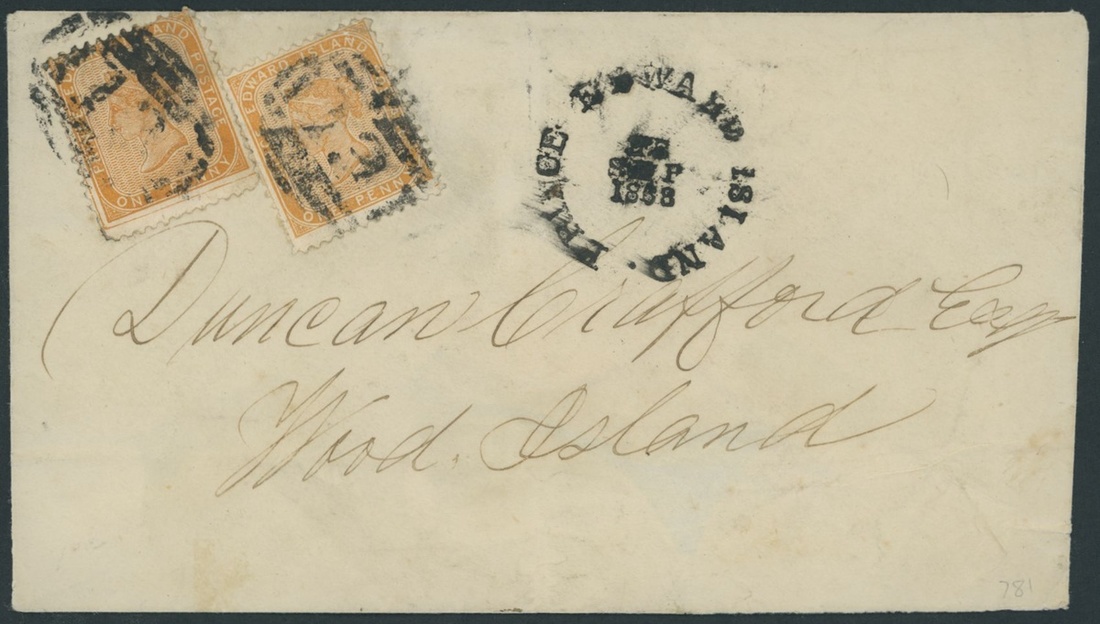 EDWARD ISLAND POSTAGE
ONE PENNY
EDWARD ISLAND
ONE PENNY
PRINCE EDWARD ISLAND.
SEP
Duncan Crafford Esqr
Wood Island
781